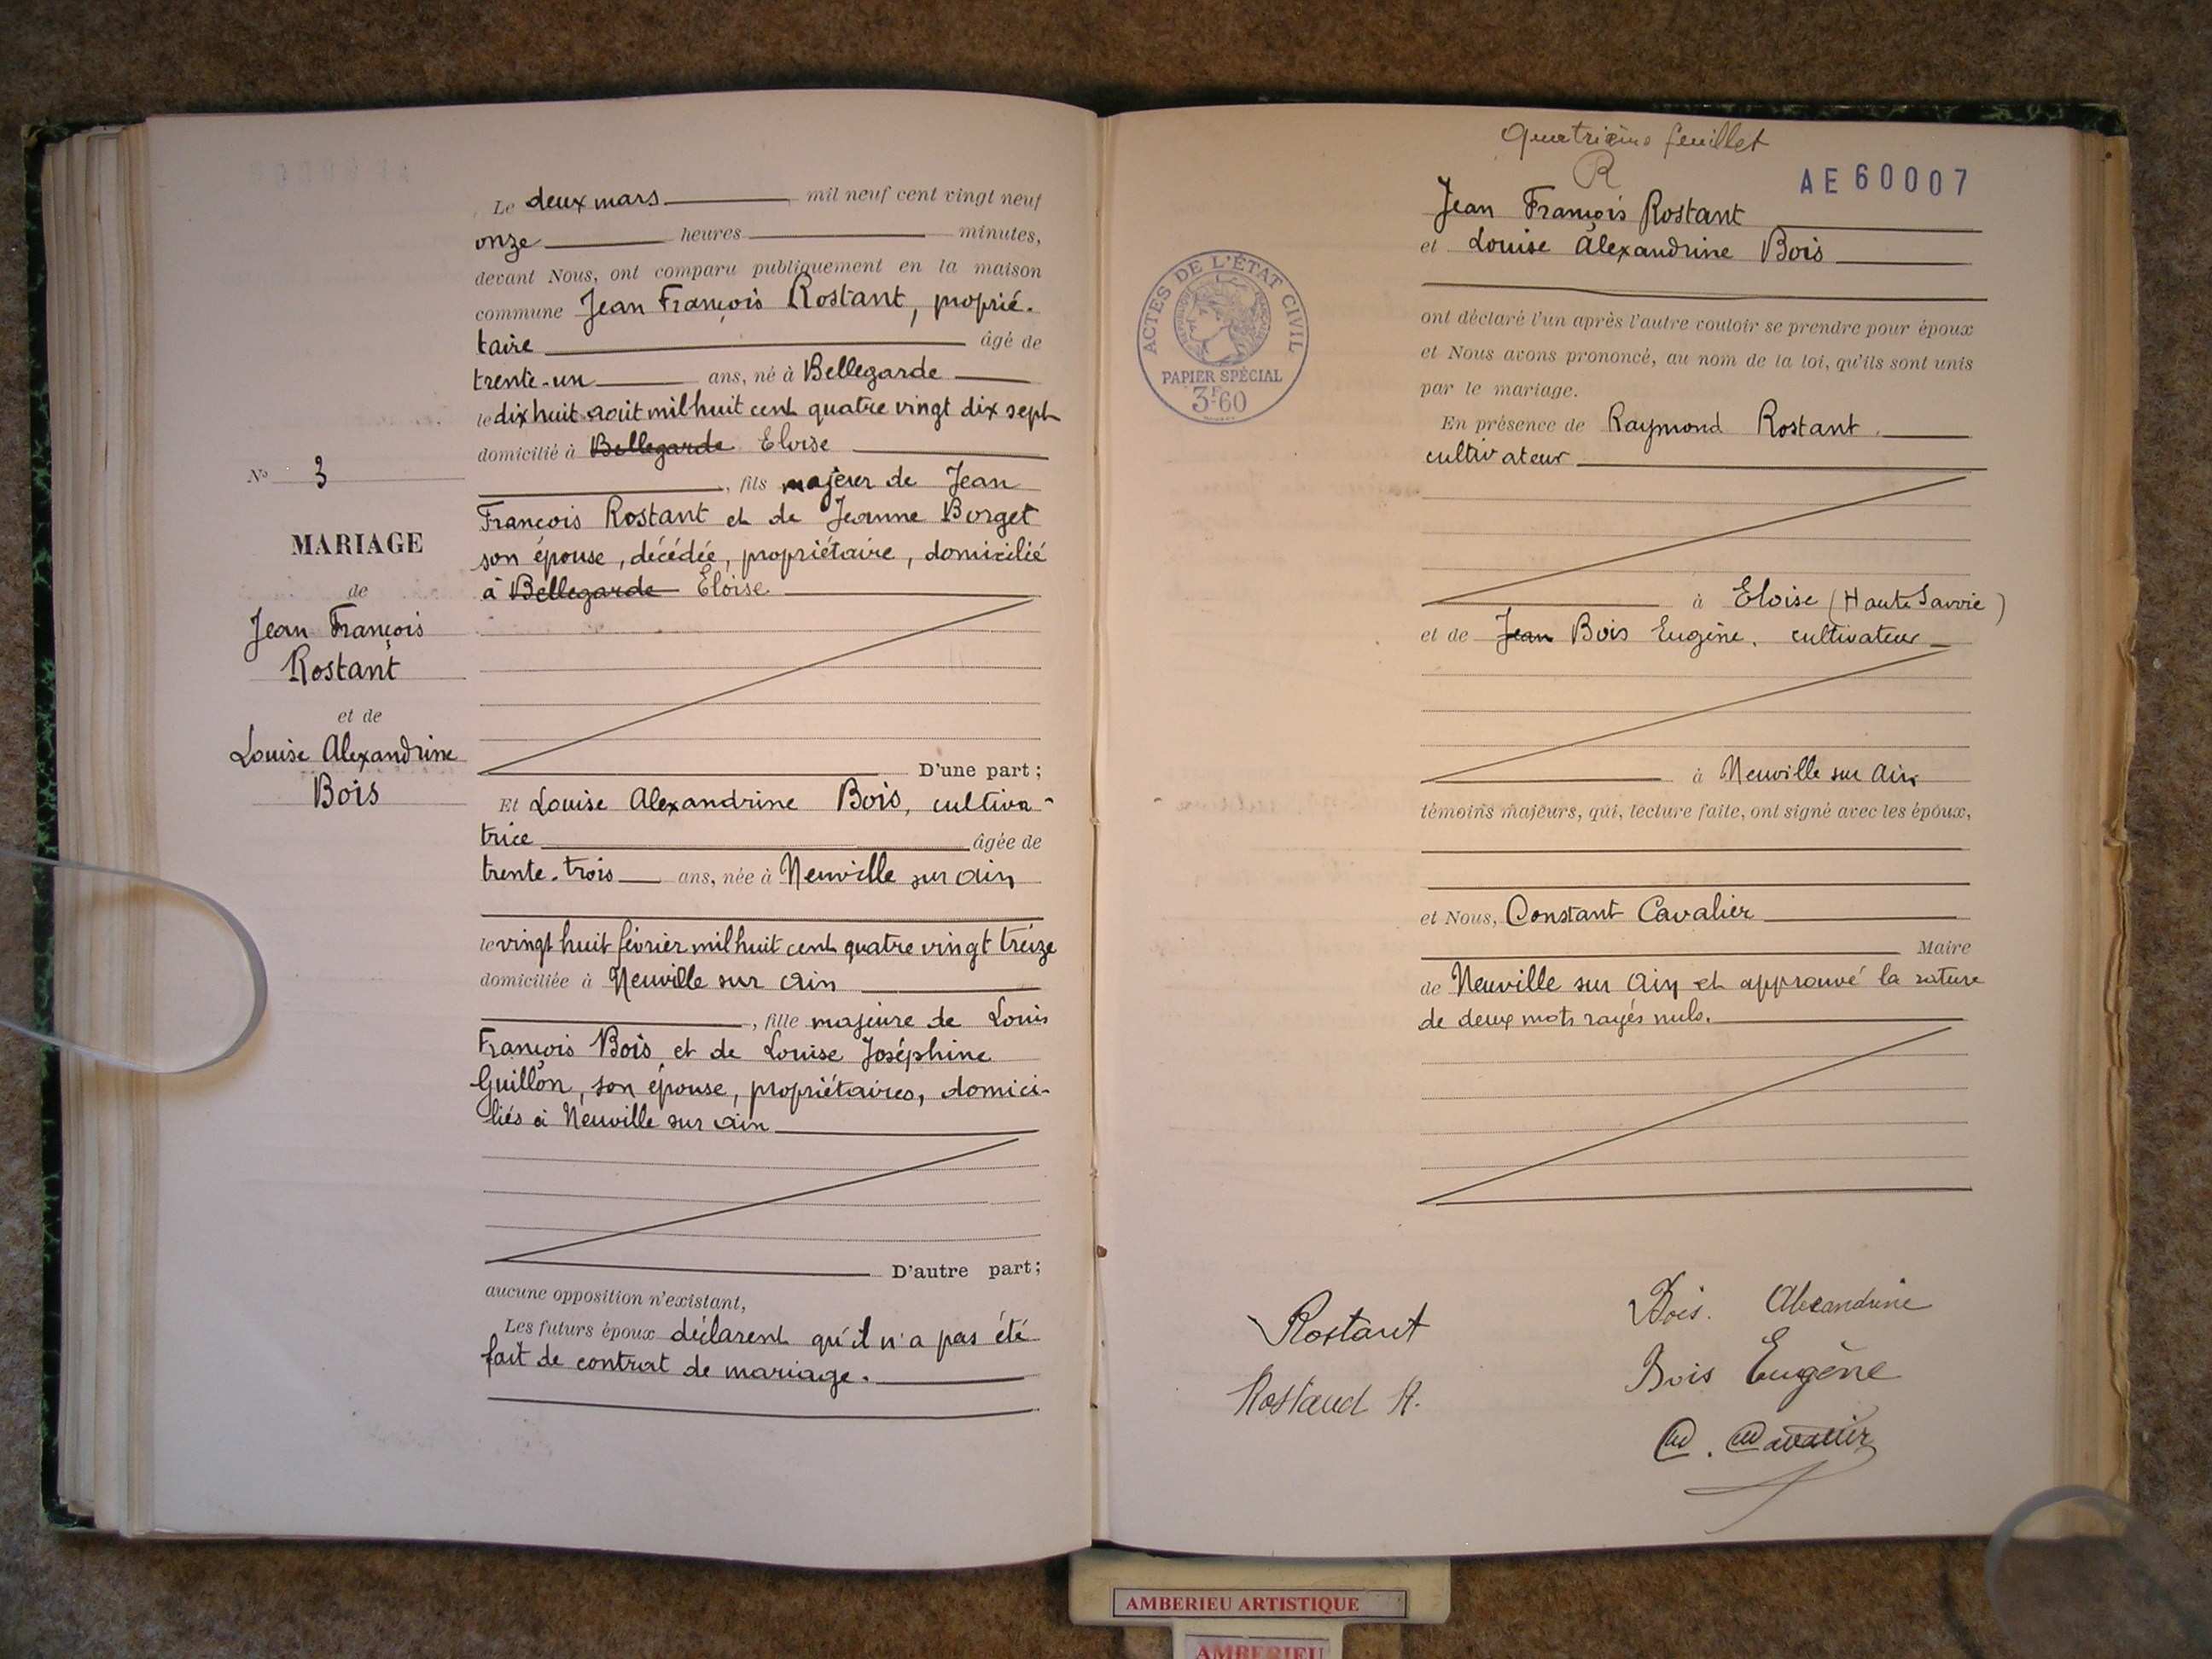 Le deux mars mil neuf cent vingt neuf
onze heures minutes,
devant Nous, ont comparu publiquement en la maison
commune Jean François Rostant, proprié-
taire âgé de
trente-un ans, né à Bellegarde
le dix huit août mil huit cent quatre vingt dix sept
domicilié à Bellegarde Eloise
, fils majeur de Jean
François Rostant et de Jeanne Borget
son épouse, décédée, propriétaire, domicilié
à Bellegarde Eloise
D'une part;
Et Louise Alexandrine Bois, cultiva-
trice âgée de
trente-trois ans, née à Neuville sur Ain
le vingt huit février mil huit cent quatre vingt treize
domiciliée à Neuville sur Ain
, fille majeure de Louis
François Bois et de Louise Joséphine
Guillon, son épouse, propriétaires, domici-
liés à Neuville sur Ain
D'autre part;
aucune opposition n'existant,
Les futurs époux déclarent qu'il n'a pas été
fait de contrat de mariage.
N° 3
MARIAGE
de
Jean François
Rostant
et de
Louise Alexandrine
Bois
Quatrième feuillet
R
AE 60007
Jean François Rostant
et Louise Alexandrine Bois
ACTES DE L'ÉTAT CIVIL
PAPIER SPÉCIAL
3F60
ont déclaré l'un après l'autre vouloir se prendre pour époux
et Nous avons prononcé, au nom de la loi, qu'ils sont unis
par le mariage.
En présence de Raymond Rostant
cultivateur
à Eloise (Haute Savoie)
et de Jean Bois Eugène, cultivateur
à Neuville sur Ain
témoins majeurs, qui, lecture faite, ont signé avec les époux,
et Nous, Constant Cavalier
Maire
de Neuville sur Ain et approuvé la rature
de deux mots rayés nuls.
Rostant
Bois. Alexandrine
Rostand R.
Bois Eugène
C. Cavalier
AMBERIEU ARTISTIQUE
AMBERIEU